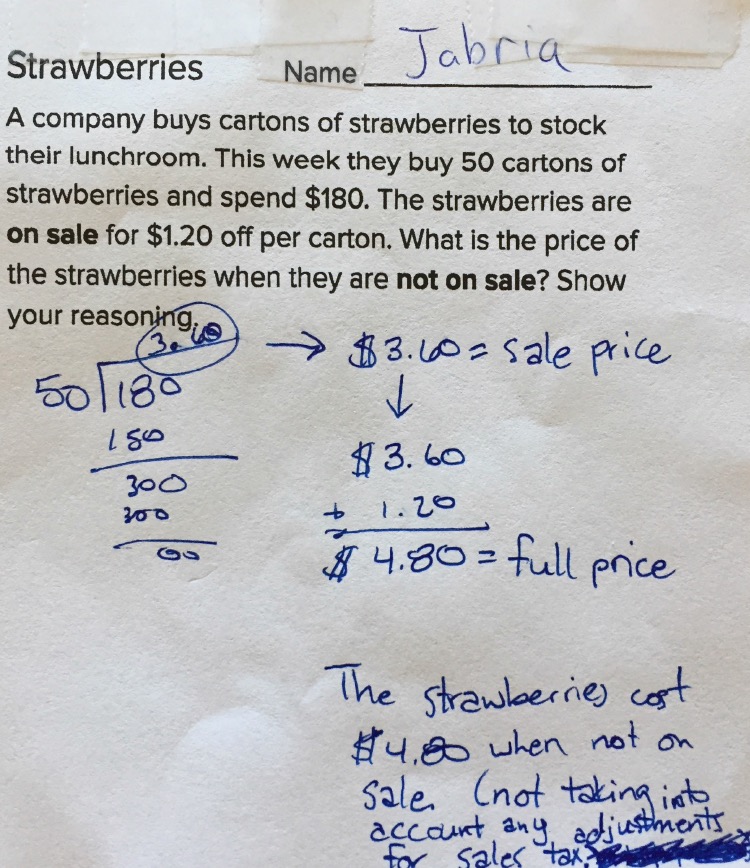 Strawberries Name Jabria
A company buys cartons of strawberries to stock
their lunchroom. This week they buy 50 cartons of
strawberries and spend $180. The strawberries are
on sale for $1.20 off per carton. What is the price of
the strawberries when they are not on sale? Show
your reasoning.
3.60 → $3.60 = sale price
50 180 ↓
150
$3.60
300
300
+ 1.20
00
$4.80 = full price
The strawberries cost
$4.80 when not on
sale. (not taking into
account any adjustments
for sales tax.